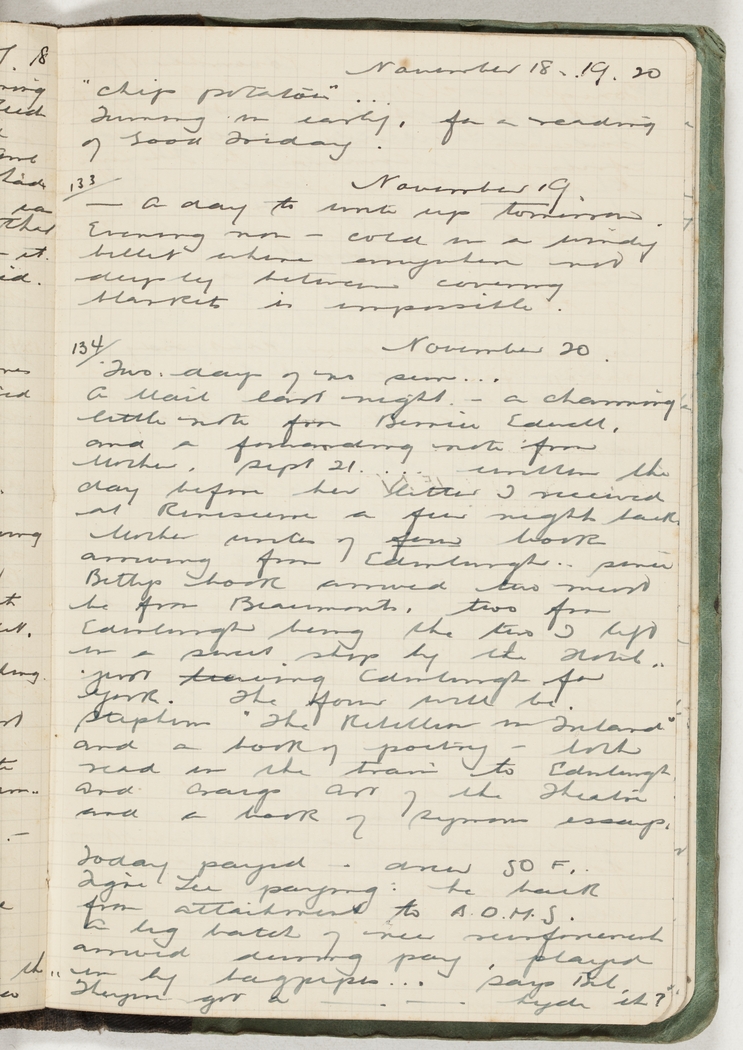 November 18. 19. 20
"chip potatoes"...
Turning in early, for a reading
of Good Friday.
133
November 19.
— A day to write up tomorrow.
Evening now — cold in a windy
billet where anywhere not
deeply between covering
blankets is impossible.
134/
November 20.
Two days of no sun...
A Mail last night. — a charming
little note from Bernie Edwell,
and a forwarding note from
Mother, Sept 21..... written the
day before her letter I received
at Renescure a few nights back.
Mother writes of four books
arriving from Edinburgh.. since
Bettys book arrived two must
be from Beaumonts, two from
Edinburgh being the two I left
in a sweet shop by the Hotel..
just leaving Edinburgh for
York. The four will be.
Stephens "The Rebellion in Ireland"
and a book of poetry — both
read in the train to Edinburgh
and Craigs Art of the Theatre
and a book of Symons essays.
Today payed — drew 50 F..
Lee paying: he back
from attachment to A.D.M.S.
A big batch of new reinforcements
arrived during pay, played
in by bagpipes... says Bill,
got a — . — . — hyde it?"